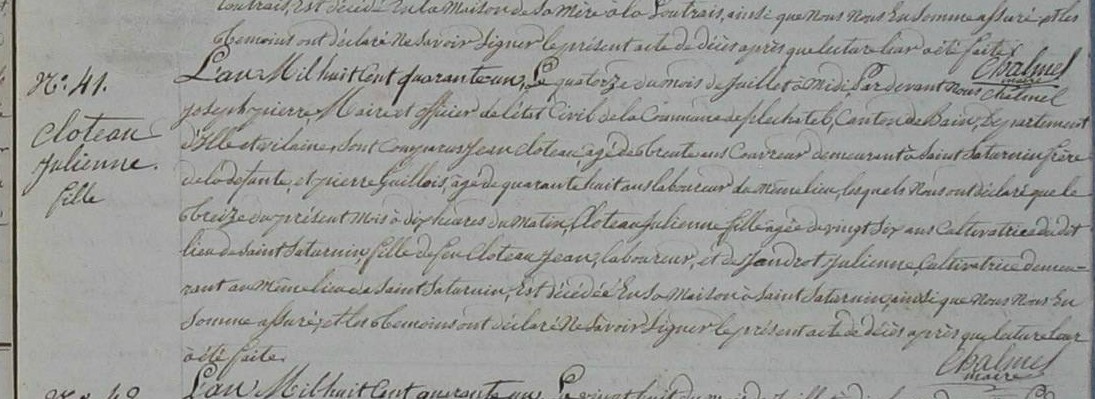 Loutrais, Est décédé En la Maison de Sa Mère à la Loutrais, ainsi que Nous Nous En Somme assuré, et les
témoins ont déclaré Ne Savoir Signer le présent acte de décès après que lecture leur a été faite.
Chalmel
maire
N.o 41.
Cloteau
Julienne.
fille
L'an Mil huit Cent quarante un, Le quatorze du mois de Juillet à Midi Par devant Nous Chalmel
joseph pierre, Maire et officier de l'état Civil de la Commune de plechatel, Canton de Bain, Département
d'Ille et vilaine, Sont Comparus Jean Cloteau, agé de trente ans Couvreur demeurant à Saint Saturnin frère
de la défunte, et pierre Guillois, agé de quarante huit ans laboureur du même lieu, lesquels Nous ont déclaré que le
treize du présent Mois à dix heures du Matin, Cloteau Julienne fille agée de vingt Six ans Cultivatrice du dit
lieu de Saint Saturnin, fille de feu Cloteau Jean, laboureur, et de Jandrot Julienne, Cultivatrice demeu-
rant au même lieu de Saint Saturnin, Est décédée En Sa Maison à Saint Saturnin, ainsi que Nous Nous En
Somme assuré, et les témoins ont déclaré Ne Savoir Signer le présent acte de décès après que lecture leur
a été faite.
Chalmel
maire
L'an Mil huit Cent quarante un, Le vingt huit du mois de Juillet